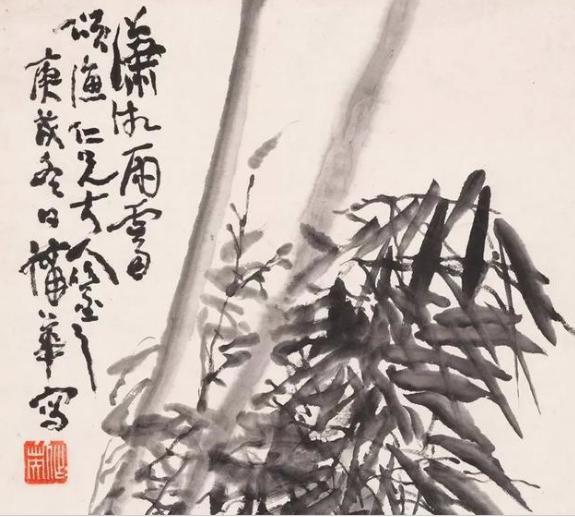 瀟湘雨
頌漁仁兄大人鑒之
庚戌冬日蒲華寫
作英